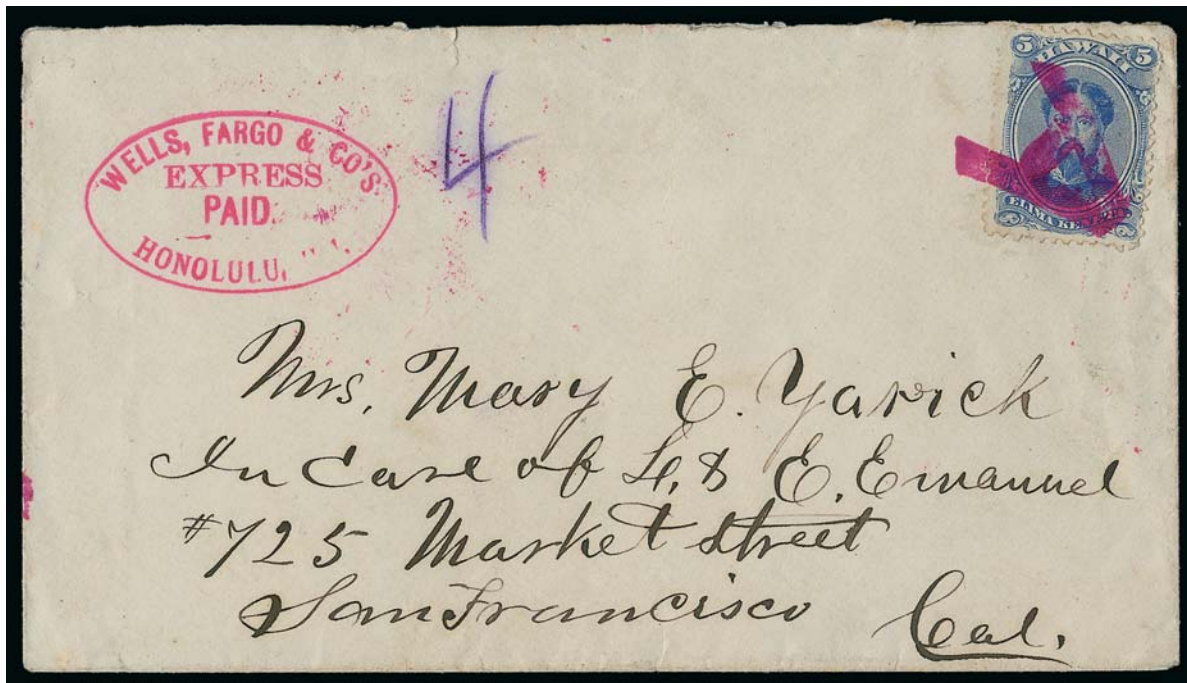 WELLS, FARGO & CO'S.
EXPRESS
PAID.
HONOLULU,
4
5 HAWAII 5
ELIMA
Mrs. Mary E. Yarick
In Care of L. & E. Emanuel
#725 Market street
San Francisco Cal.